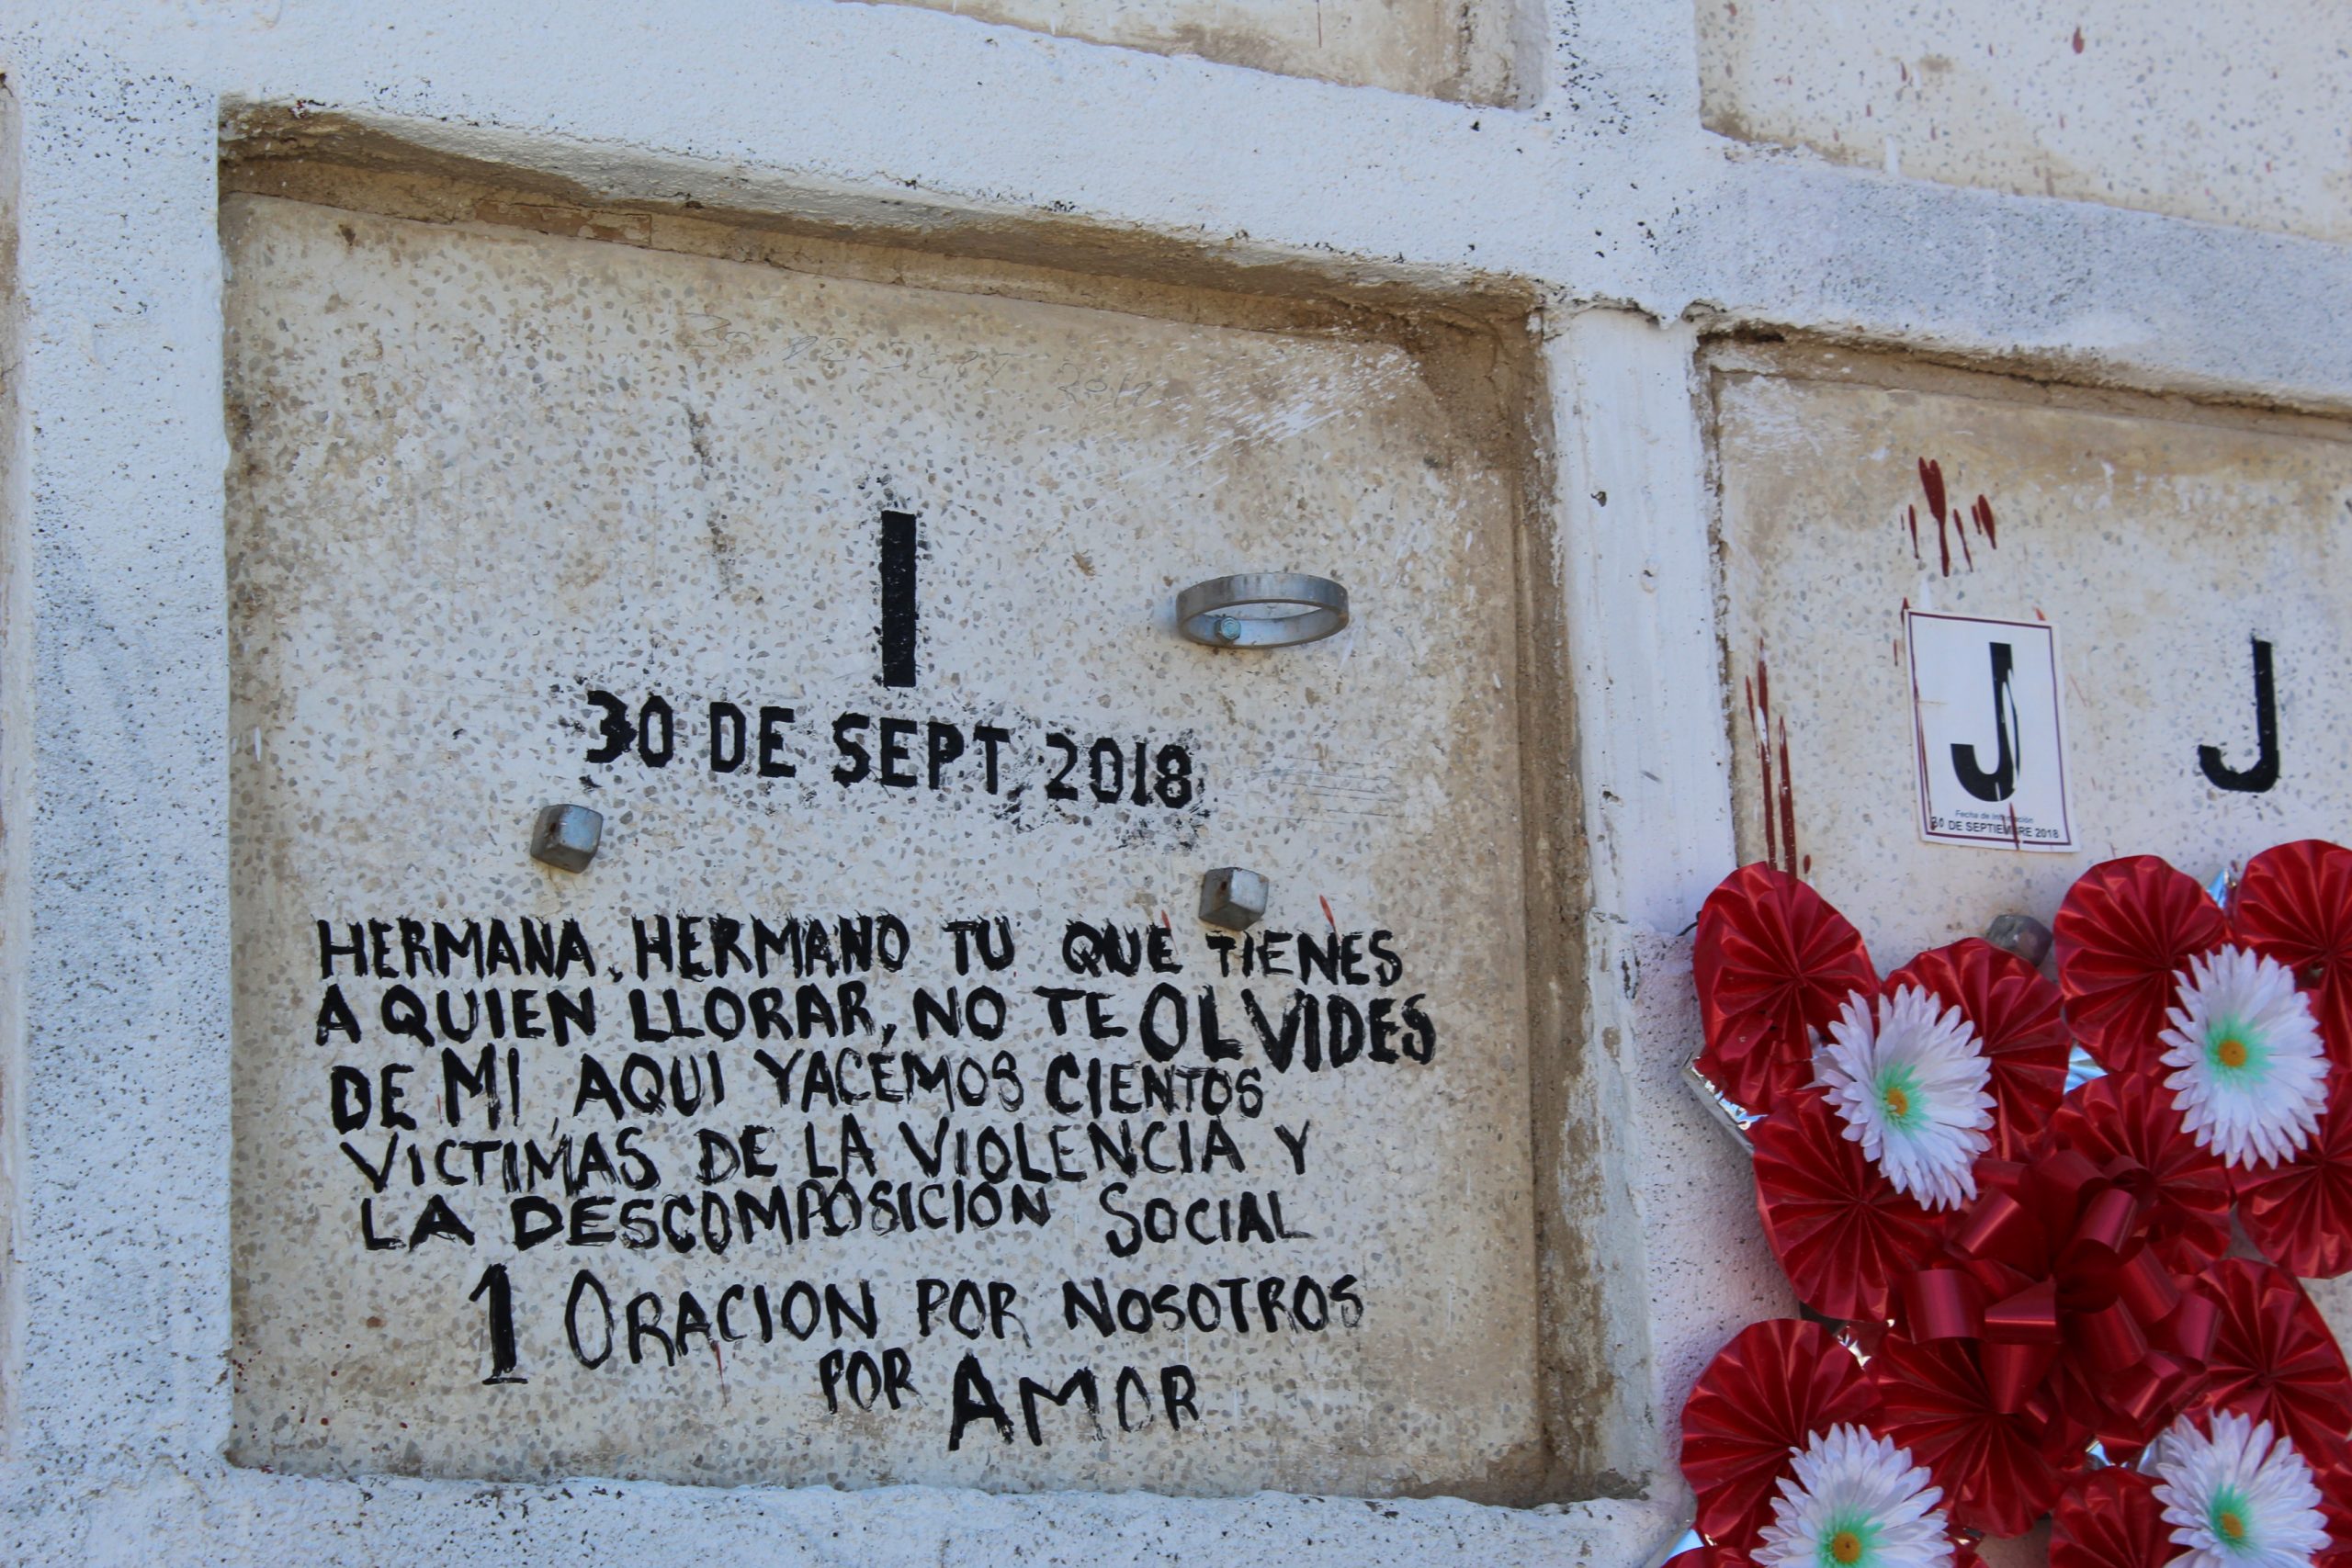 I
30 DE SEPT, 2018
HERMANA, HERMANO TU QUE TIENES
A QUIEN LLORAR, NO TE OLVIDES
DE MI, AQUI YACEMOS CIENTOS
VICTIMAS DE LA VIOLENCIA Y
LA DESCOMPOSICION SOCIAL
1 ORACION POR NOSOTROS
POR AMOR
J
Fecha de
30 DE SEPTIEMBRE 2018
J